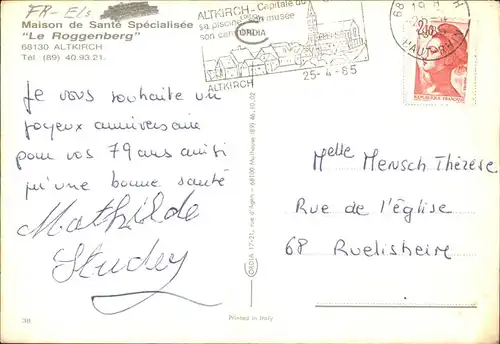 FR-E/s
Maison de Santé Spécialisée
"Le Roggenberg"
68130 ALTKIRCH
Tél (89) 40.93.21.
ALTKIRCH - Capitale du
sa piscine son musée
son
ALTKIRCH
25-4-85
68
19 H
HAUT-RHIN
2,10
REPUBLIQUE FRANÇAISE
Je vous souhaite un
joyeux anniversaire
pour vos 79 ans ainsi
qu'une bonne santé
Mathilde
Studey
Melle Mensch Thérèse
Rue de l'Église
68 Ruelisheire
Printed in Italy